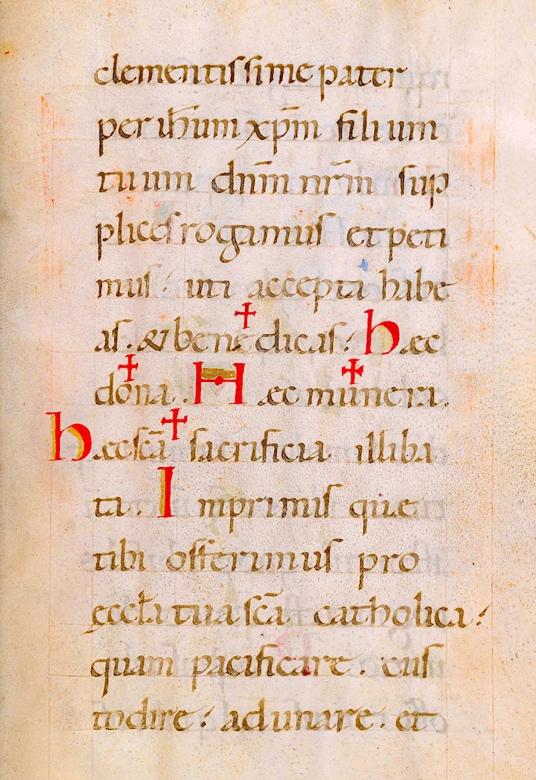 clementissime pater
per ih̅um xp̅m filium
tuum dn̅m nr̅m sup
plices rogamus et peti
mus. uti accepta habe
as. & bene✝dicas. hęc
do✝na. Hęc mu✝nera.
hęc sc̅a ✝ sacrificia illiba
ta. Inprimis quę
tibi offerimus pro
ęccl̅a tua sc̅a catholica.
quam pacificare. cus
todire. adunare. et